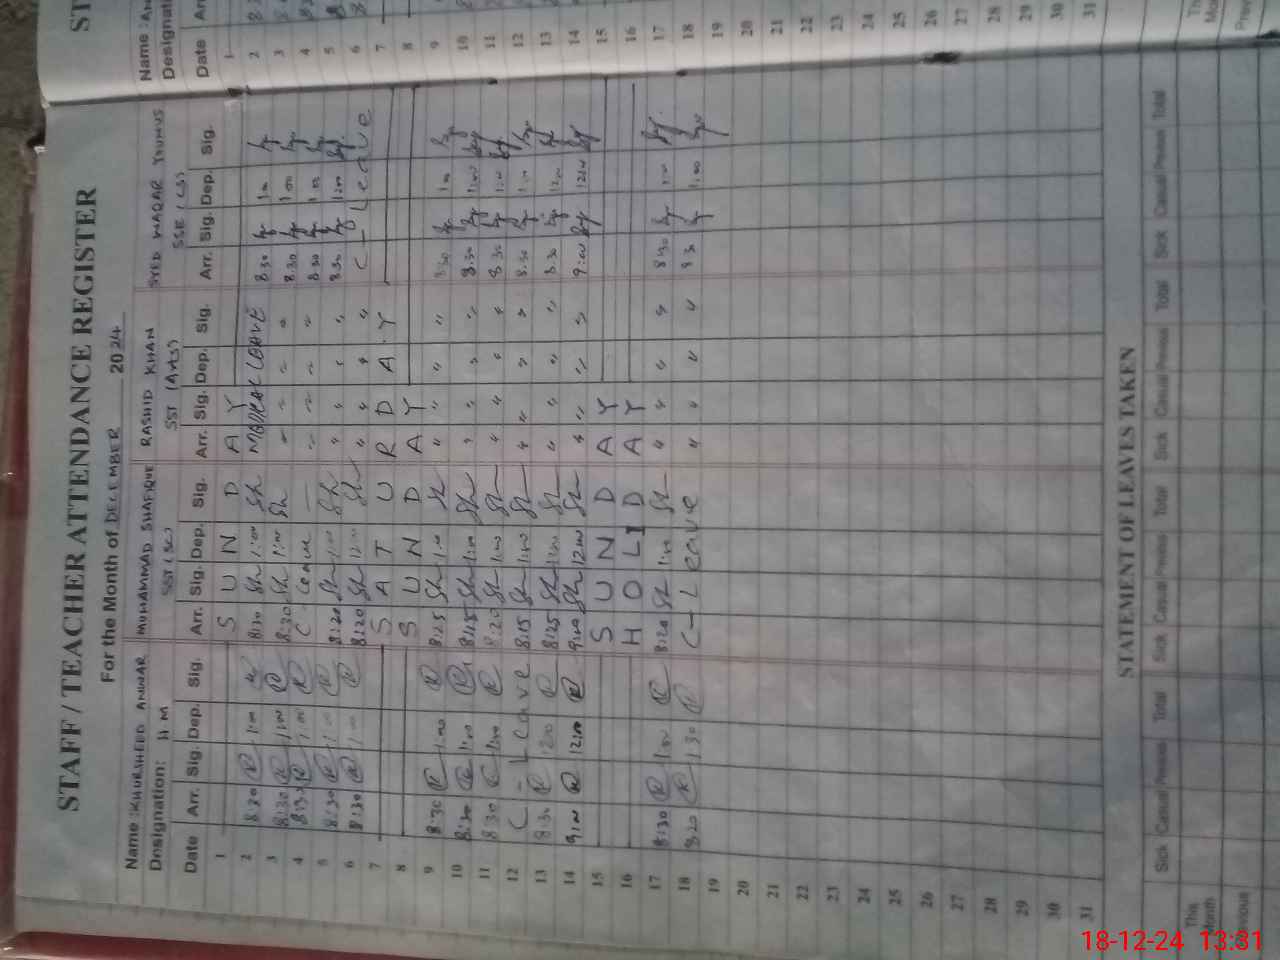 STAFF / TEACHER ATTENDANCE REGISTER
For the Month of DECEMBER 2024
Name : KHURSHEED ANWAR MUHAMMAD SHAFIQUE RASHID KHAN SYED WAQAR YOUNUS
Designation: H.M SST (SC) SST (Arts) SSE (CS)
Date Arr. Sig. Dep. Sig. Arr. Sig. Dep. Sig. Arr. Sig. Dep. Sig. Arr. Sig. Dep. Sig.
1 S U N D A Y
2 8:30 1:00 8:30 1:00 MEDICAL LEAVE 8:30 1:00
3 8:30 1:00 8:30 1:00 " " " " 8:30 1:00
4 8:30 1:00 " " " " 8:30 1:00
5 8:30 1:00 8:20 1:00 " " " " 8:30 1:00
6 8:30 1:00 8:20 12:00 " " " " C-Leave
7 S A T U R D A Y
8 S U N D A Y
9 8:30 1:00 8:15 1:00 " " " " 8:30 1:00
10 8:30 1:00 8:15 1:00 " " " " 8:30 1:00
11 8:30 1:00 8:20 1:00 " " " " 8:30 1:00
12 C-Leave 8:15 1:00 " " " " 8:30 1:00
13 8:30 12:00 8:25 12:00 " " " " 8:30 12:00
14 9:00 12:00 9:00 12:00 " " " " 9:00 12:00
15 S U N D A Y
16 H O L I D A Y
17 8:30 1:00 8:20 1:00 " " " " 8:30 1:00
18 8:20 1:30 C-Leave " " " " 8:30 1:00
19
20
21
22
23
24
25
26
27
28
29
30
31
STATEMENT OF LEAVES TAKEN
Sick Casual Previous Total Sick Casual Previous Total Sick Casual Previous Total Sick Casual Previous Total
This Month
Previous
Name :
Designat
Date
1
2
3
4
5
6
7
8
9
10
11
12
13
14
15
16
17
18
19
20
21
22
23
24
25
26
27
28
29
30
31
18-12-24 13:31